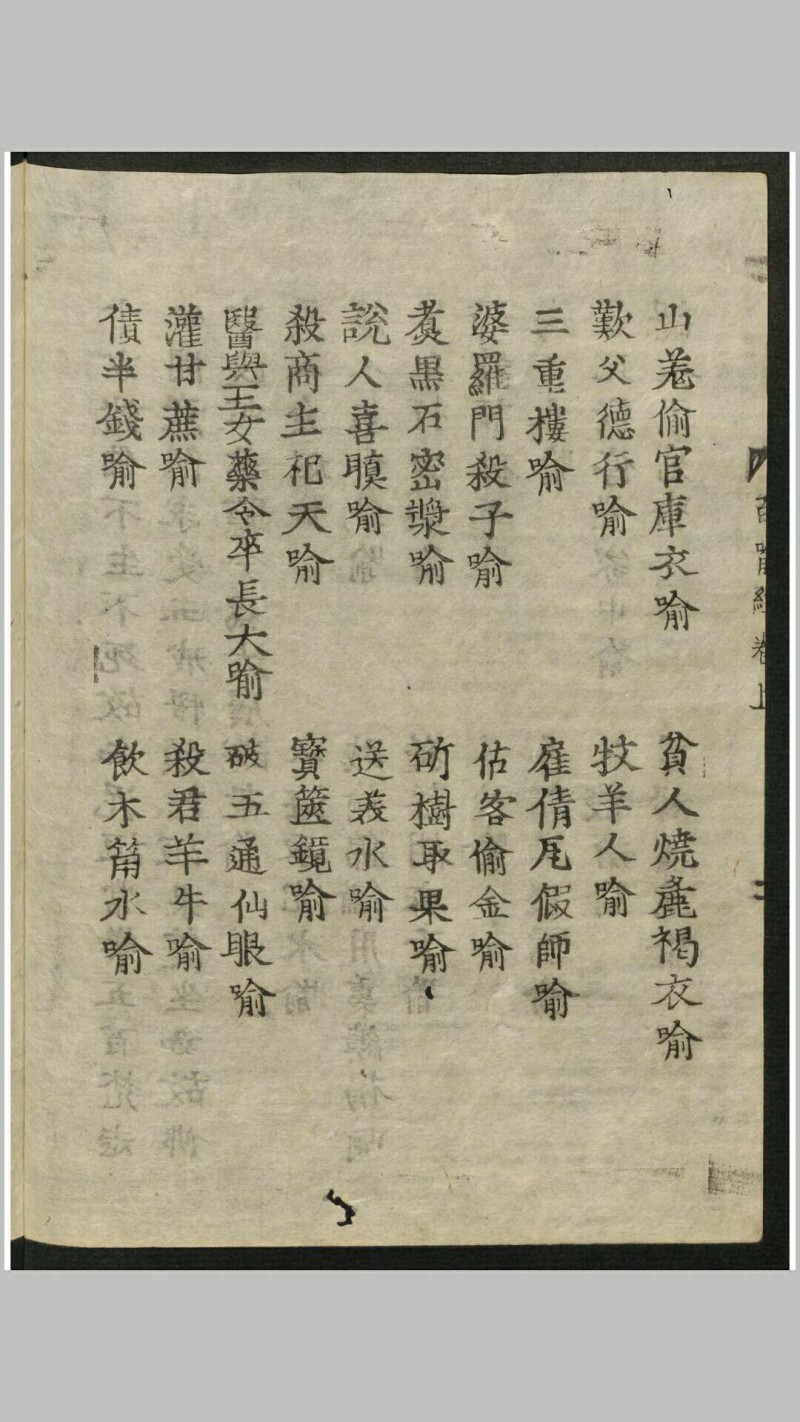 百喻經卷上
二
山羗偷官庫衣喻 貧人燒麁褐衣喻
歎父德行喻 牧羊人喻
三重樓喻 雇倩瓦假師喻
婆羅門殺子喻 估客偷金喻
煑黒石密漿喻 斫樹取果喻
說人喜瞋喻 送美水喻
殺商主祀天喻 寶篋鏡喻
醫與王女藥令卒長大喻 破五通仙眼喻
灌甘蔗喻 殺君羊牛喻
債半錢喻 飲木筩水喻